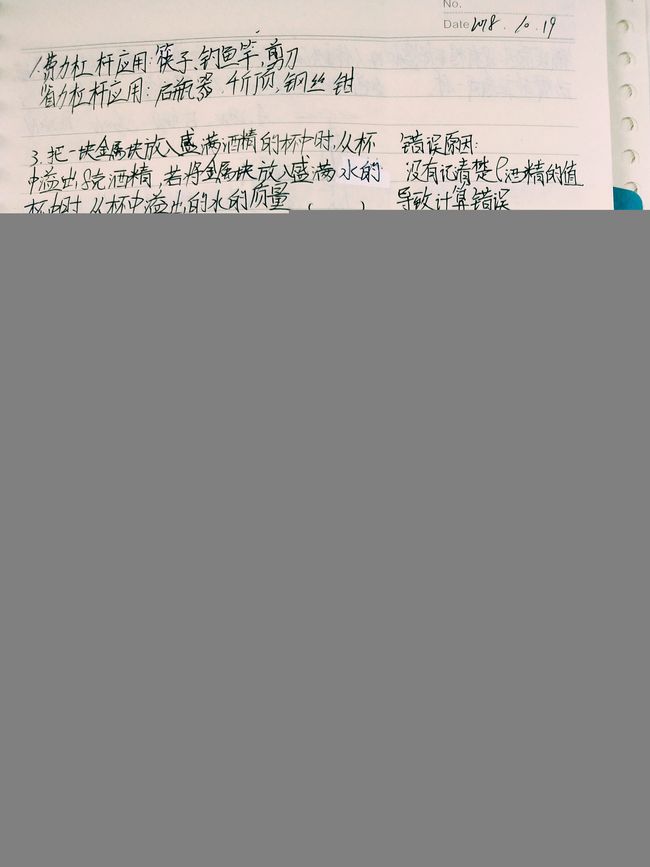 No.
Date 2018.10.19
1.费力杠杆应用:筷子、钓鱼竿,剪刀
省力杠杆应用:启瓶器,千斤顶,钢丝钳
3.把一块金属块放入盛满酒精的杯中时,从杯
中溢出8克酒精,若将金属块放入盛满水的
杯中时,从杯中溢出的水的质量 ( )
错误原因:
没有记清楚ρ酒精的值
导致计算错误